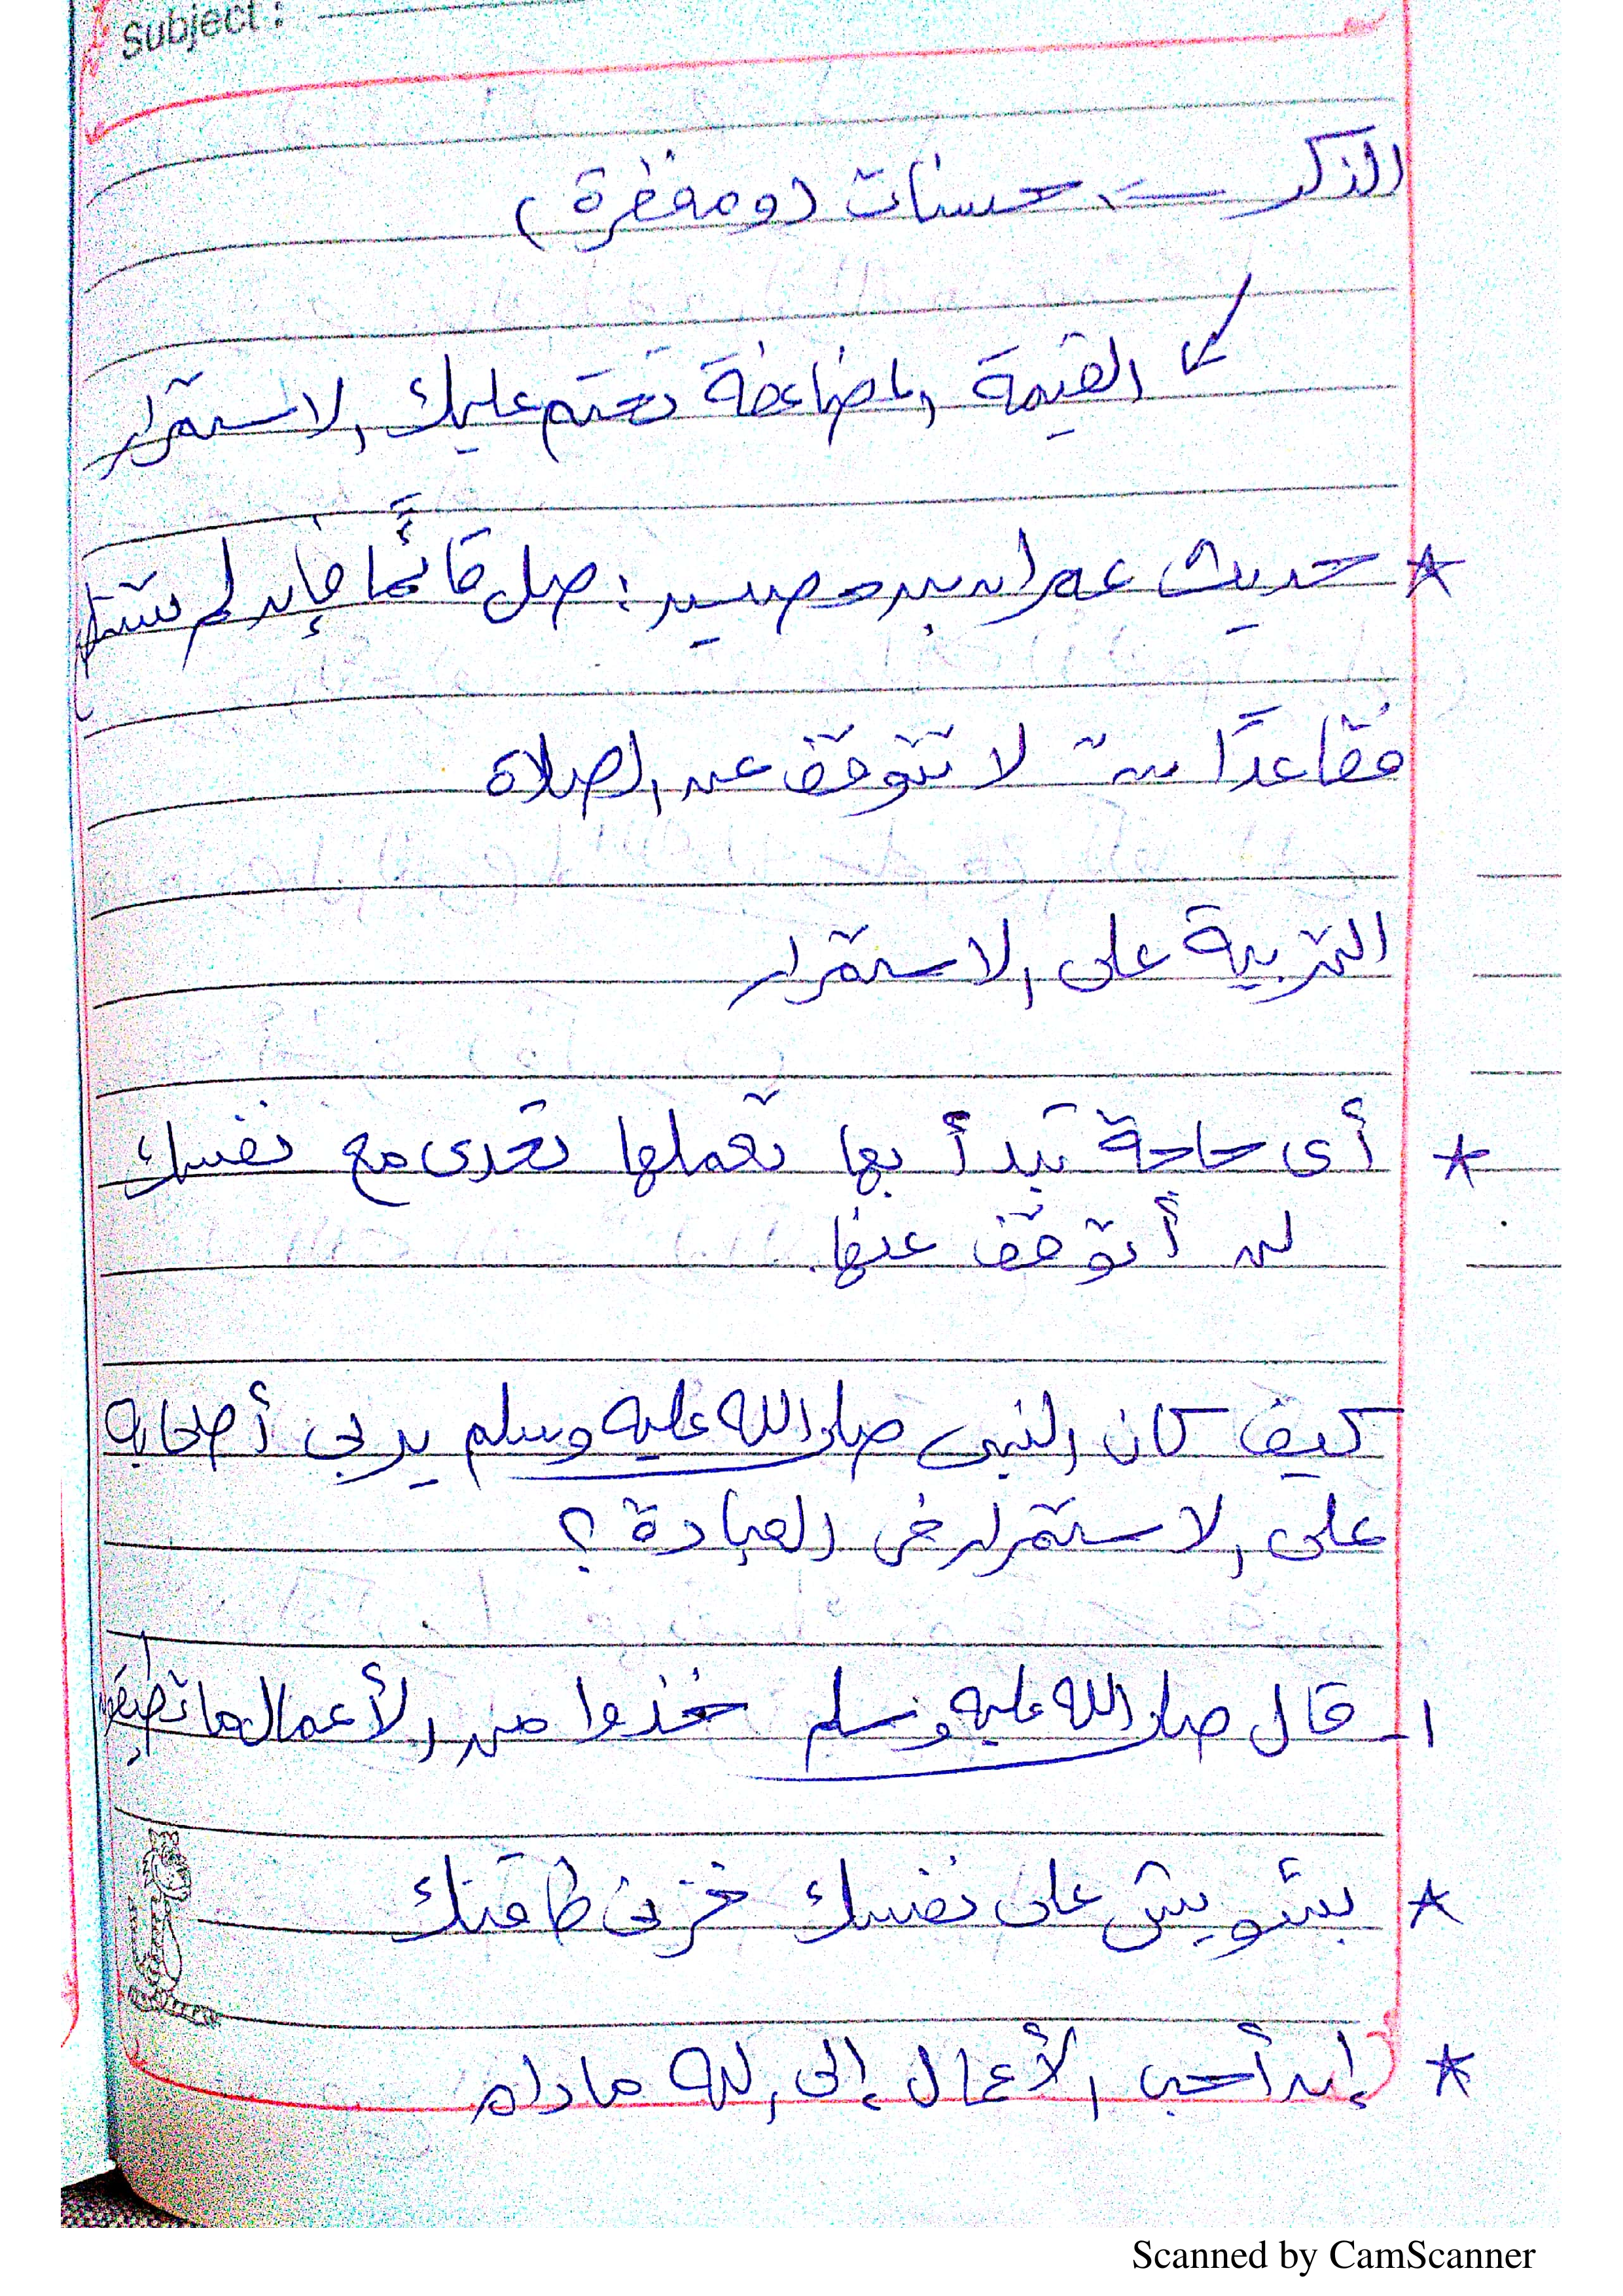 Subject :
الذكر ← حسنات (ومغفرة)
← القيمة المضاعفة تحتم عليك الاستمرار
* حديث عمران بن حصين : صل قائمًا فإن لم تستطع
فقاعدًا ← لا تتوقف عن الصلاة
التربية على الاستمرار
* أى حاجة تبدأ بها تعملها تحدى مع نفسك
لن أتوقف عنها.
كيف كان النبى صلى الله عليه وسلم يربى أصحابه
على الاستمرار فى العبادة ؟
١- قال صلى الله عليه وسلم خذوا من الأعمال ما تطيقون
* بشويش على نفسك خزنى طاقتك
* إن أحب الأعمال إلى الله ما دام
Scanned by CamScanner